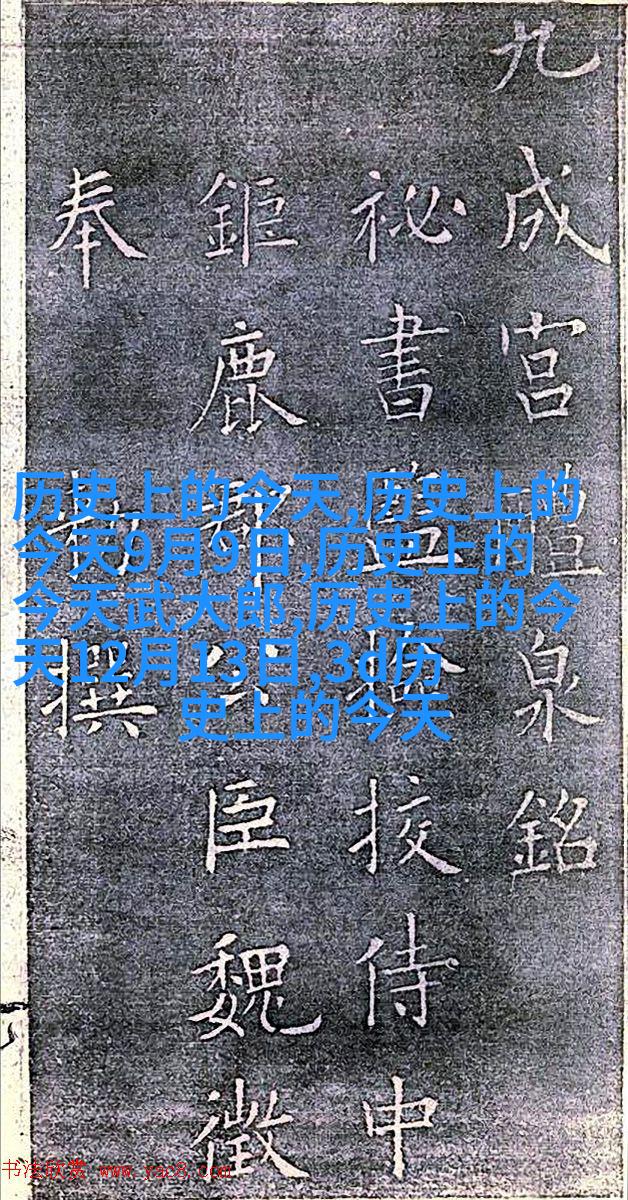 九成宮醴泉銘
祕書監檢挍侍中
鉅鹿郡公臣魏徵
奉勑撰
历史上的今天,历史上的
今天9月9日,历史上的
今天武大郎,历史上的今
天12月13日,3d历
史上的今天
书法欣赏 www.yac8.com